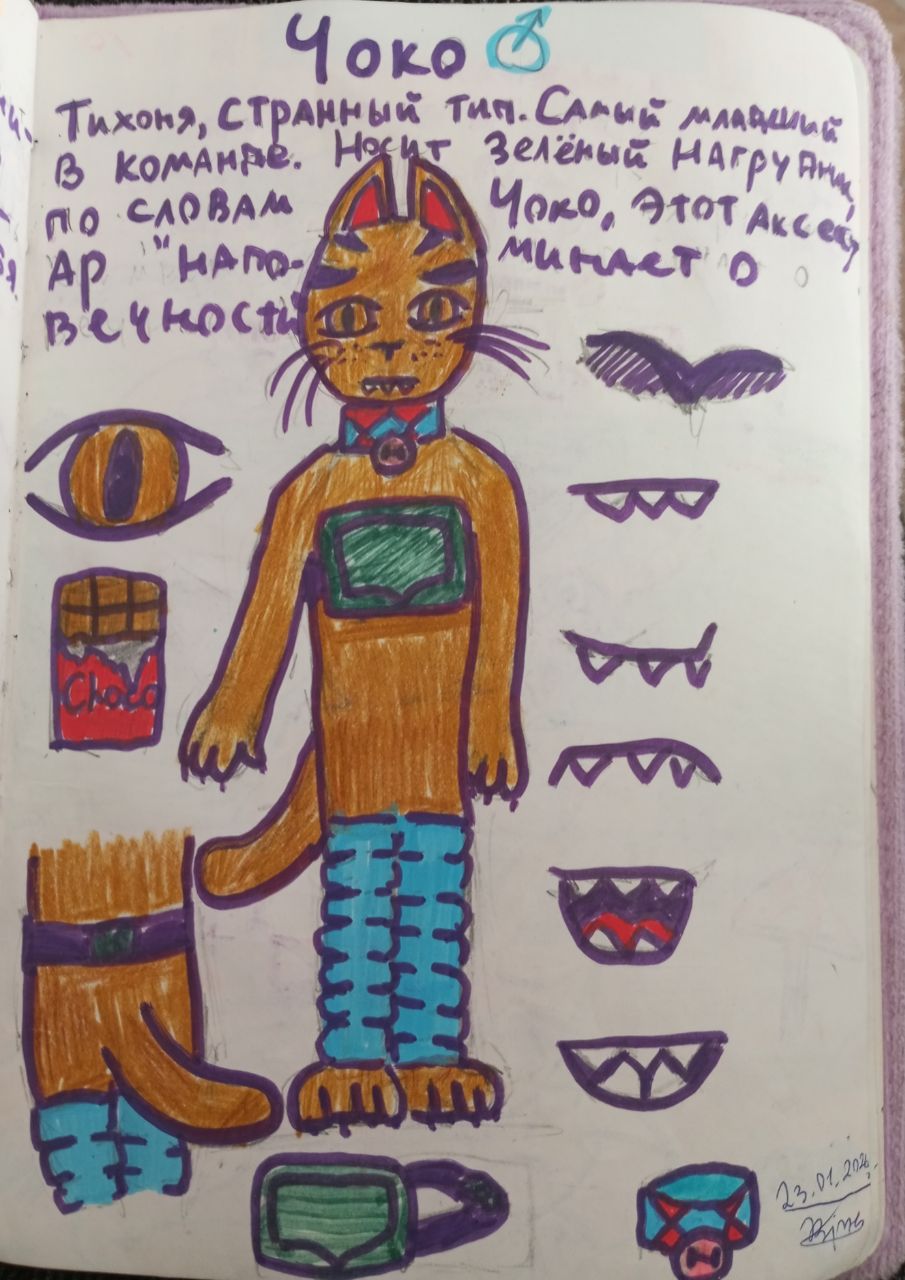 Чоко ♂
Тихоня, странный тип. Самый младший
в команде. Носит зелёный нагрудник,
по словам Чоко, этот аксессу
ар "напо- минает о
вечности"
Choco
23.01.2026